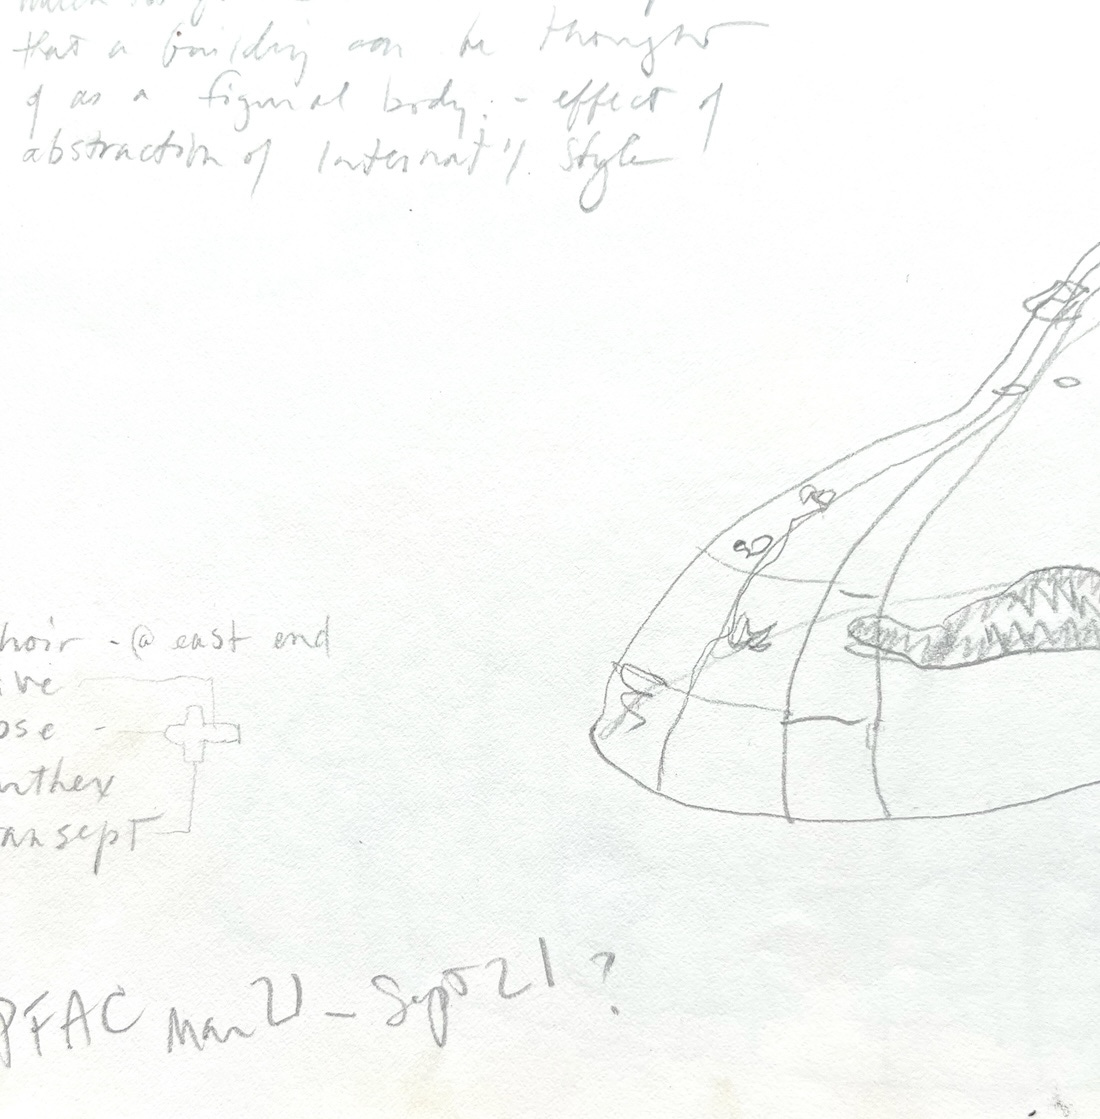 that a building can be thought
of as a figural body. - effect of
abstraction of Internat'l Style
hoir - @ east end
ive
ose -
rthex
ansept
PFAC Mar 21 - Sept 21 ?